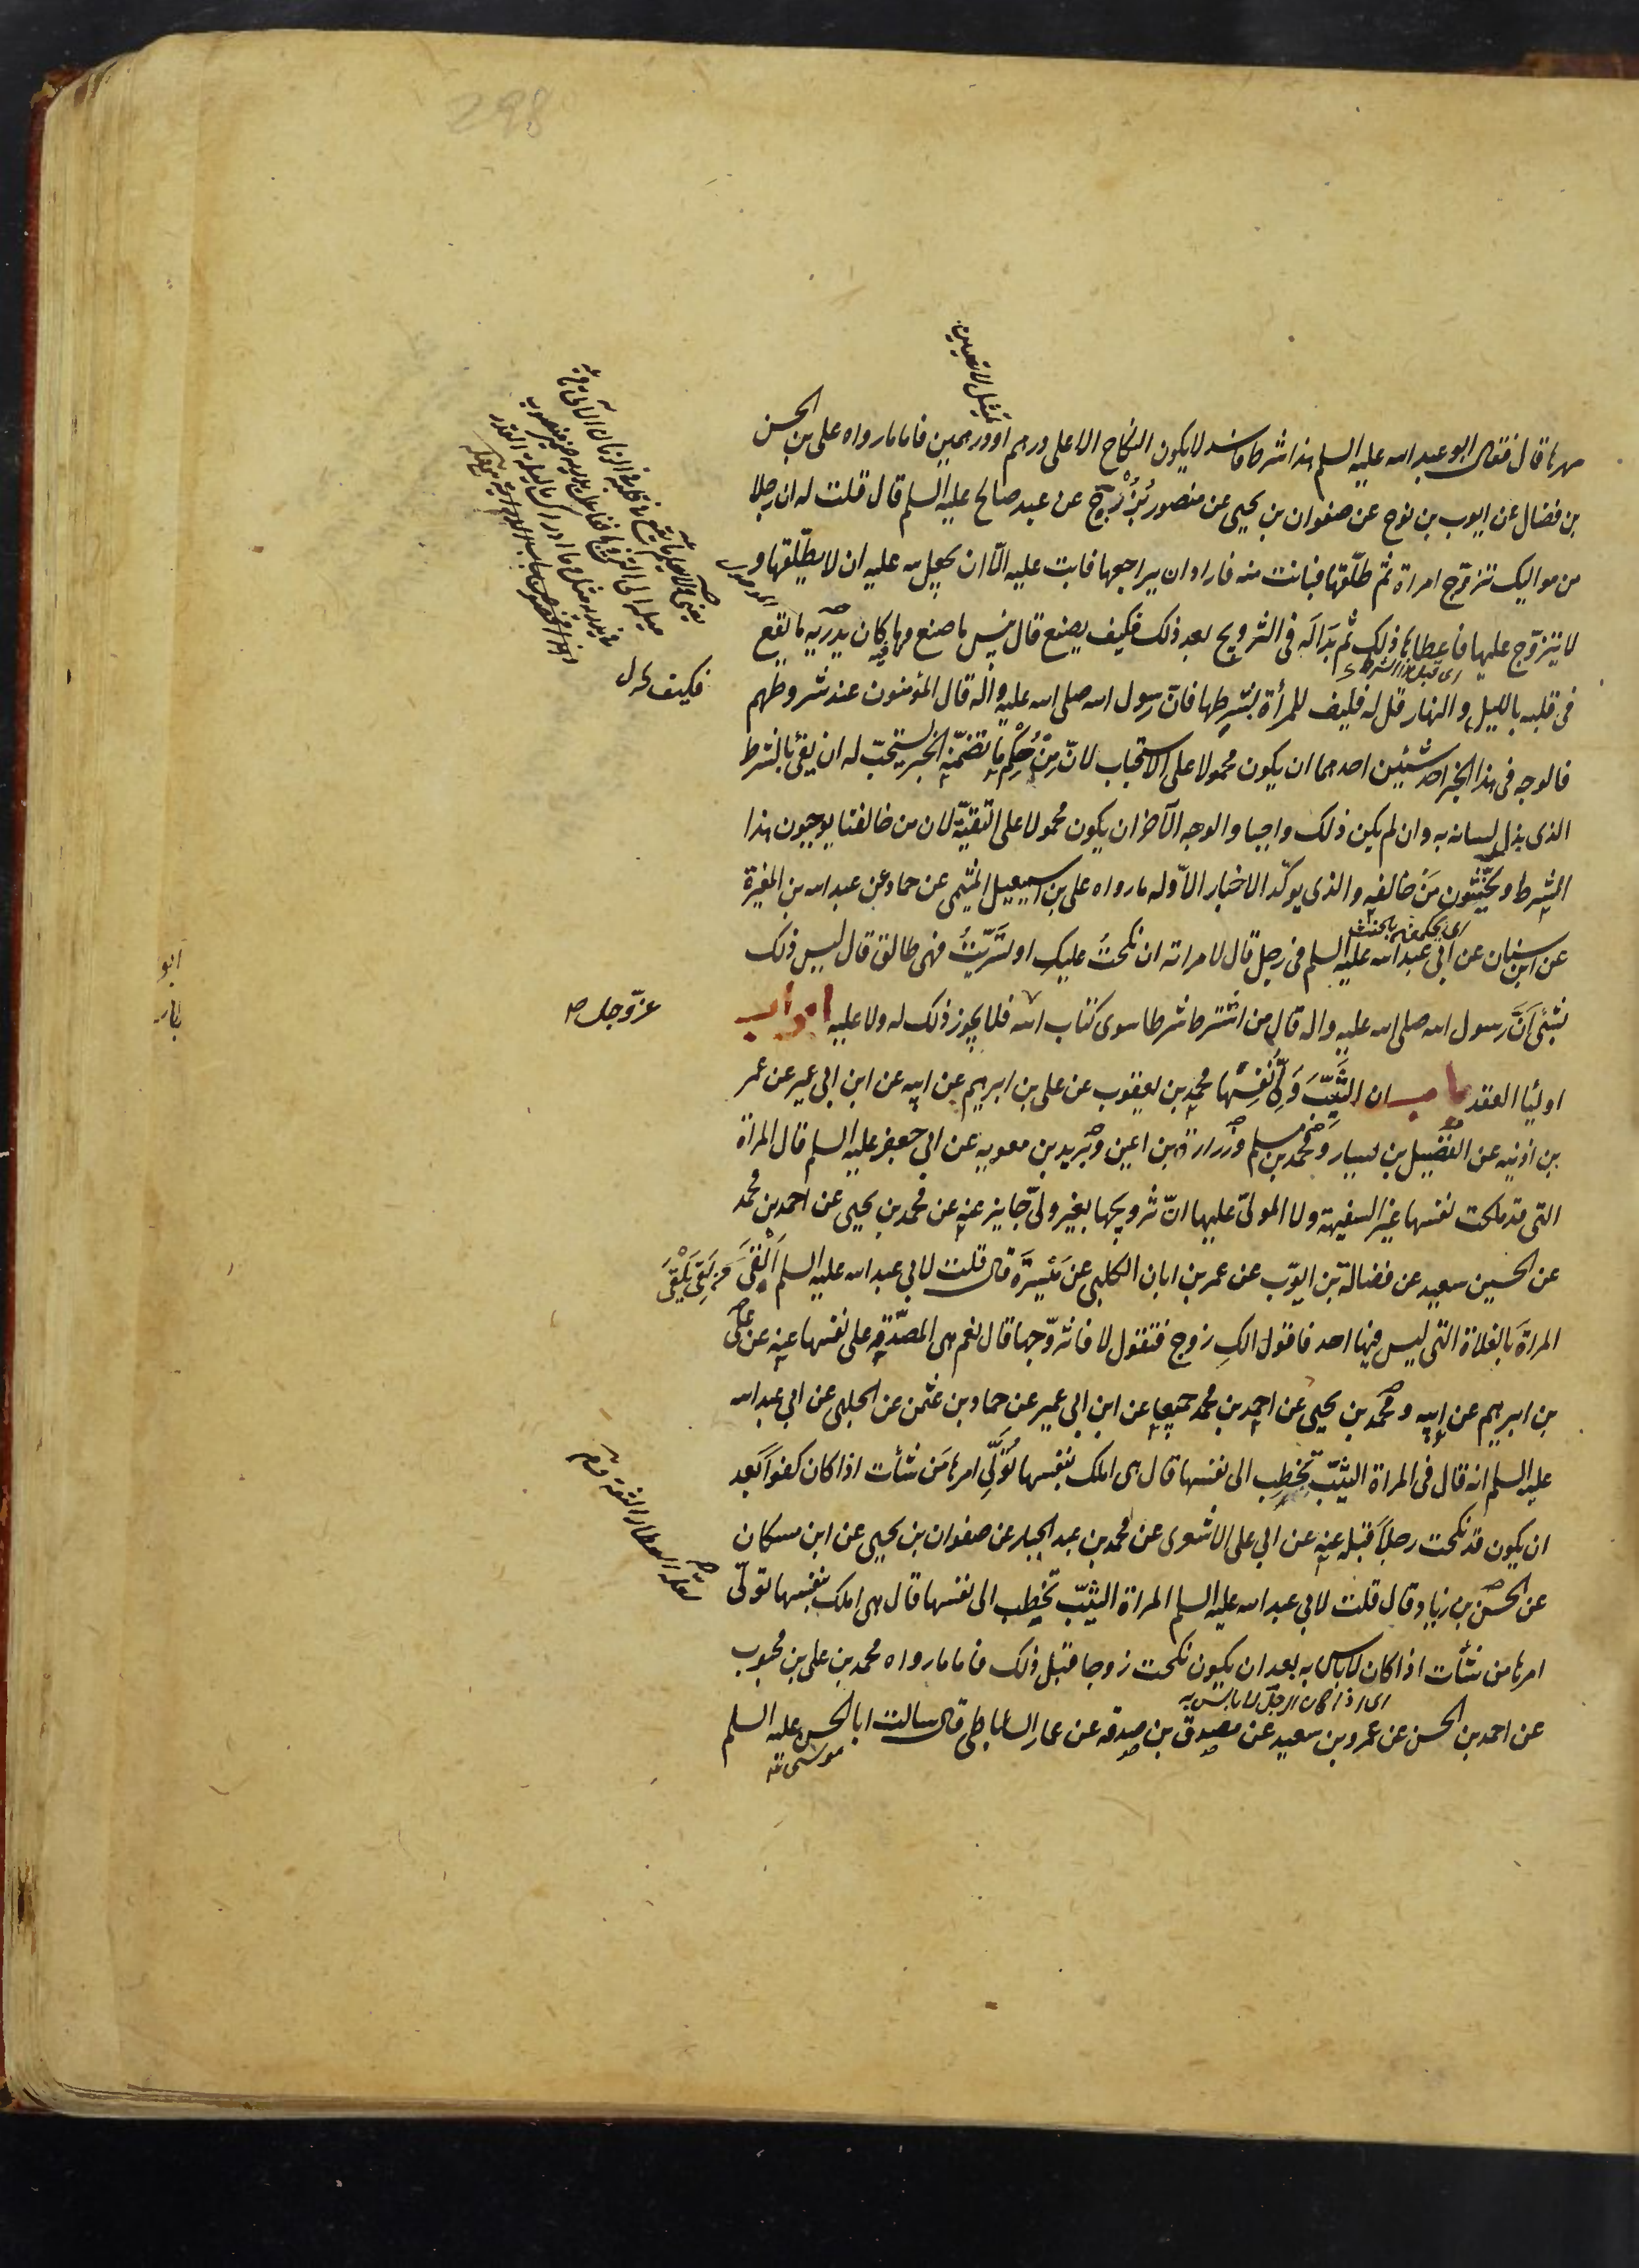 298
تمثيل لا تعيين
مهرها قال فقال ابو عبد الله عليه السلم هذا شرط فاسد لا يكون النكاح الا على درهم او درهمين فاما ما رواه على بن الحسن
بن فضال عن ايوب بن نوح عن صفوان بن يحيى عن منصور بُزُرْج عن عبد صالح عليه السلم قال قلت له ان رجلا
من مواليك تزوّج امراة ثم طلّقها فبانت منه فاراد ان يراجعها فابت عليه الّا ان يجعل لله عليه ان لا يطلّقها و
لا يتزوّج عليها فاعطاها ذلك ثم بَدَا لَه فى التزويج بعد ذلك فكيف يصنع قال بئس ما صنع وما كان يدريه ما يقع
اى قبل هذا الشرط
فى قلبه بالليل و النهار قل له فليف للمرأة بشرطها فانّ رسول الله صلى الله عليه واله قال المؤمنون عند شروطهم
فكيف
فالوجه فى هذا الخبر احد شيئين احدهما ان يكون محمولا على الاستحباب لانّ مِنْ حُكْمِ ما تضمّنه الخبر يستحبّ له ان يفئ بالشرط
الذى بذل لسانه به وان لم يكن ذلك واجبا والوجه الآخر ان يكون محمولا على التقيّة لان من خالفنا يوجبون هذا
الشرط ويُحَنِّثون مَنْ خالفه والذى يوكّد الاخبار الاوّله ما رواه على بن اسمعيل الميثمى عن حماد عن عبد الله بن المغيرة
اى يحكمون بالحنث
عن ابن سنان عن ابى عبد الله عليه السلم فى رجل قال لامراته ان نكحتُ عليكِ او تَسَرّيتُ فهى طالق قال ليس ذلك
بشئ اَنَّ رسول الله صلى الله عليه واله قال من اشترط شرطا سوى كتاب الله فلا يجوز ذلك له ولا عليه ابواب
عزّ وجل صح
اوليا العقد باب ان الثيّبَ وَلِىُّ نَفْسِها محمد بن يعقوب عن على بن ابرهيم عن ابيه عن ابن ابى عمير عن عمر
بن اذينه عن الفضيل بن يسار و محمد بن مسلم و زرارة بن اعين و بريد بن معويه عن ابى جعفر عليه السلم قال المراة
التى قد ملكت نفسها غير السفيهة ولا المولىّ عليها انّ تزويجها بغير ولىّ جايز عنه عن محمد بن يحيى عن احمد بن محمد
عن الحسين سعيد عن فضالة بن ايوّب عن عمر بن ابان الكلبى عن مَيْسَرَة قال قلت لابى عبد الله عليه السلم اَلْقَى
من لَقِىَ يَلْقَى
المراةَ بالفلاة التى ليس فيها احد فاقول الكِ زوج فتقول لا فاتزوّجها قال نعم هى المصدّقة على نفسها عنه عن على
بن ابرهيم عن ابيه و محمد بن يحيى عن احمد بن محمد جميعا عن ابن ابى عمير عن حماد بن عثمن عن الحلبى عن ابى عبد الله
عليه السلم انه قال فى المراة الثيّب تخطب الى نفسها قال هى املك بنفسها تُوَلِّى امرها مَن شأت اذا كان كفوا بَعد
ان يكون قد نكحت رجلاً قبله عنه عن ابى على الاشعرى عن محمد بن عبد الجبار عن صفوان بن يحيى عن ابن مسكان
عن الحسن بن زياد قال قلت لابى عبد الله عليه السلم المراة الثيّب تخطب الى نفسها قال هى املك بنفسها تولّى
لعله العطار الثقة
امرها من شأت اذا كان لا باس به بعد ان يكون نكحت زوجا قبل ذلك فاما ما رواه محمد بن على بن محبوب
اى اذا كان الرجل لا باس به
عن احمد بن الحسن عن عمرو بن سعيد عن مصدق بن صدقه عن عمار الساباطى قال سالت ابا الحسن عليه السلم
موسى